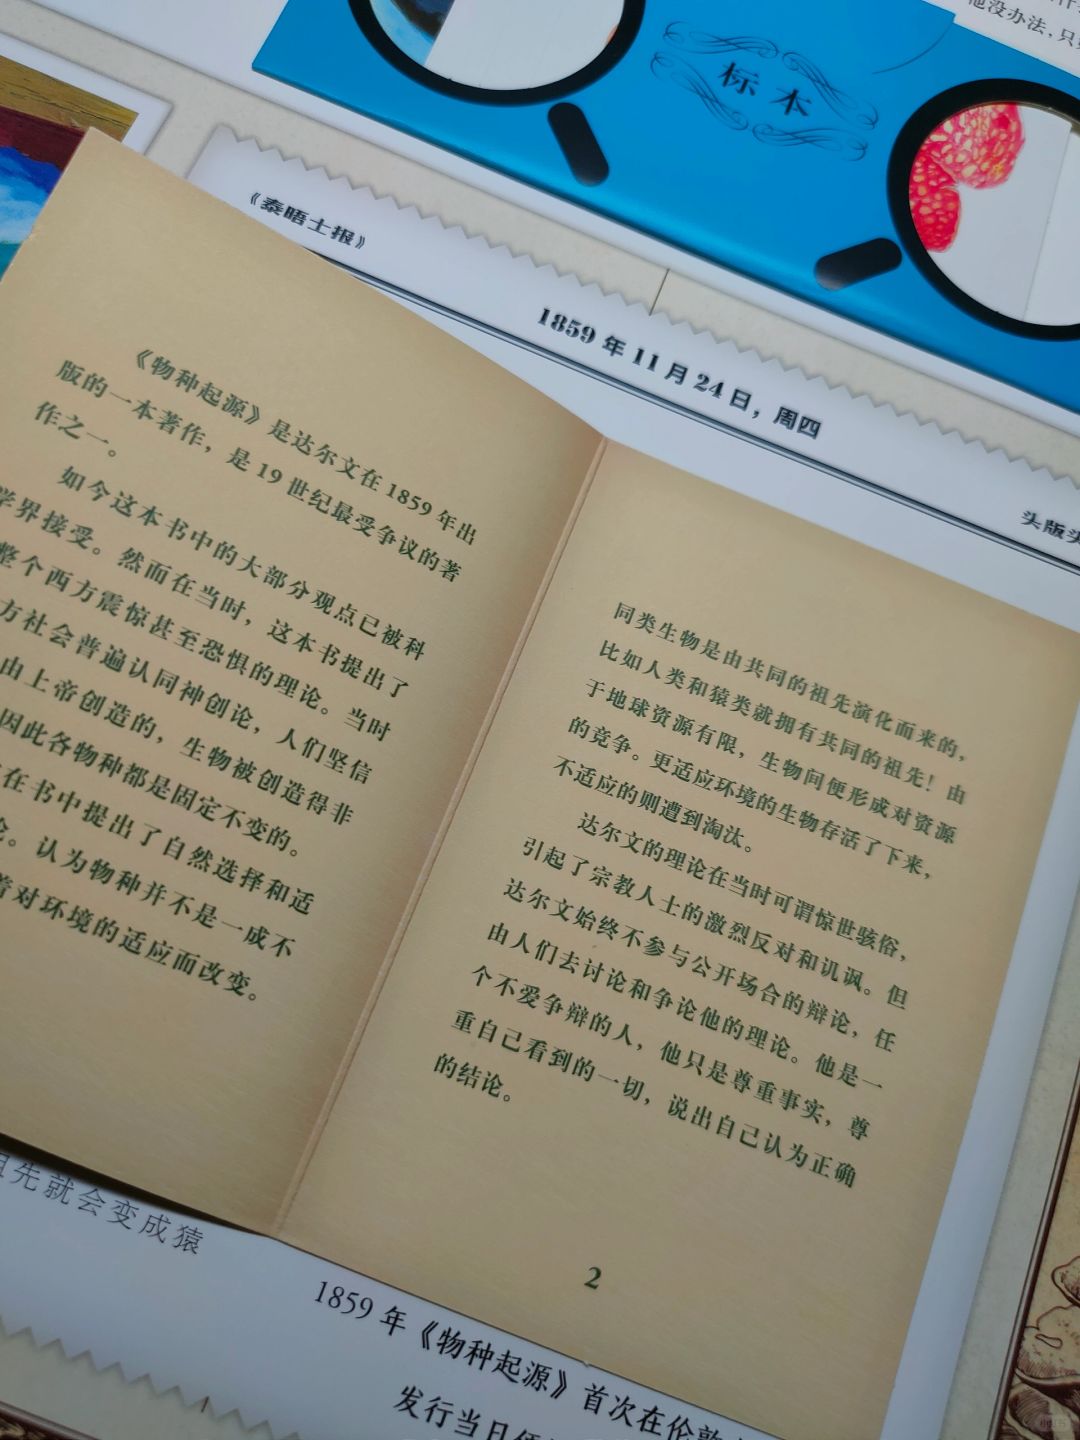 他没办法，只
标本
《泰晤士报》
1859 年 11 月 24 日，周四
头版头
《物种起源》是达尔文在 1859 年出
版的一本著作，是 19 世纪最受争议的著
作之一。
如今这本书中的大部分观点已被科
学界接受。然而在当时，这本书提出了
整个西方震惊甚至恐惧的理论。当时
方社会普遍认同神创论，人们坚信
由上帝创造的，生物被创造得非
因此各物种都是固定不变的。
在书中提出了自然选择和适
论。认为物种并不是一成不
着对环境的适应而改变。
同类生物是由共同的祖先演化而来的，
比如人类和猿类就拥有共同的祖先！由
于地球资源有限，生物间便形成对资源
的竞争。更适应环境的生物存活了下来，
不适应的则遭到淘汰。
达尔文的理论在当时可谓惊世骇俗，
引起了宗教人士的激烈反对和讥讽。但
达尔文始终不参与公开场合的辩论，任
由人们去讨论和争论他的理论。他是一
个不爱争辩的人，他只是尊重事实，尊
重自己看到的一切，说出自己认为正确
的结论。
2
祖先就会变成猿
1859 年《物种起源》首次在伦敦
发行当日